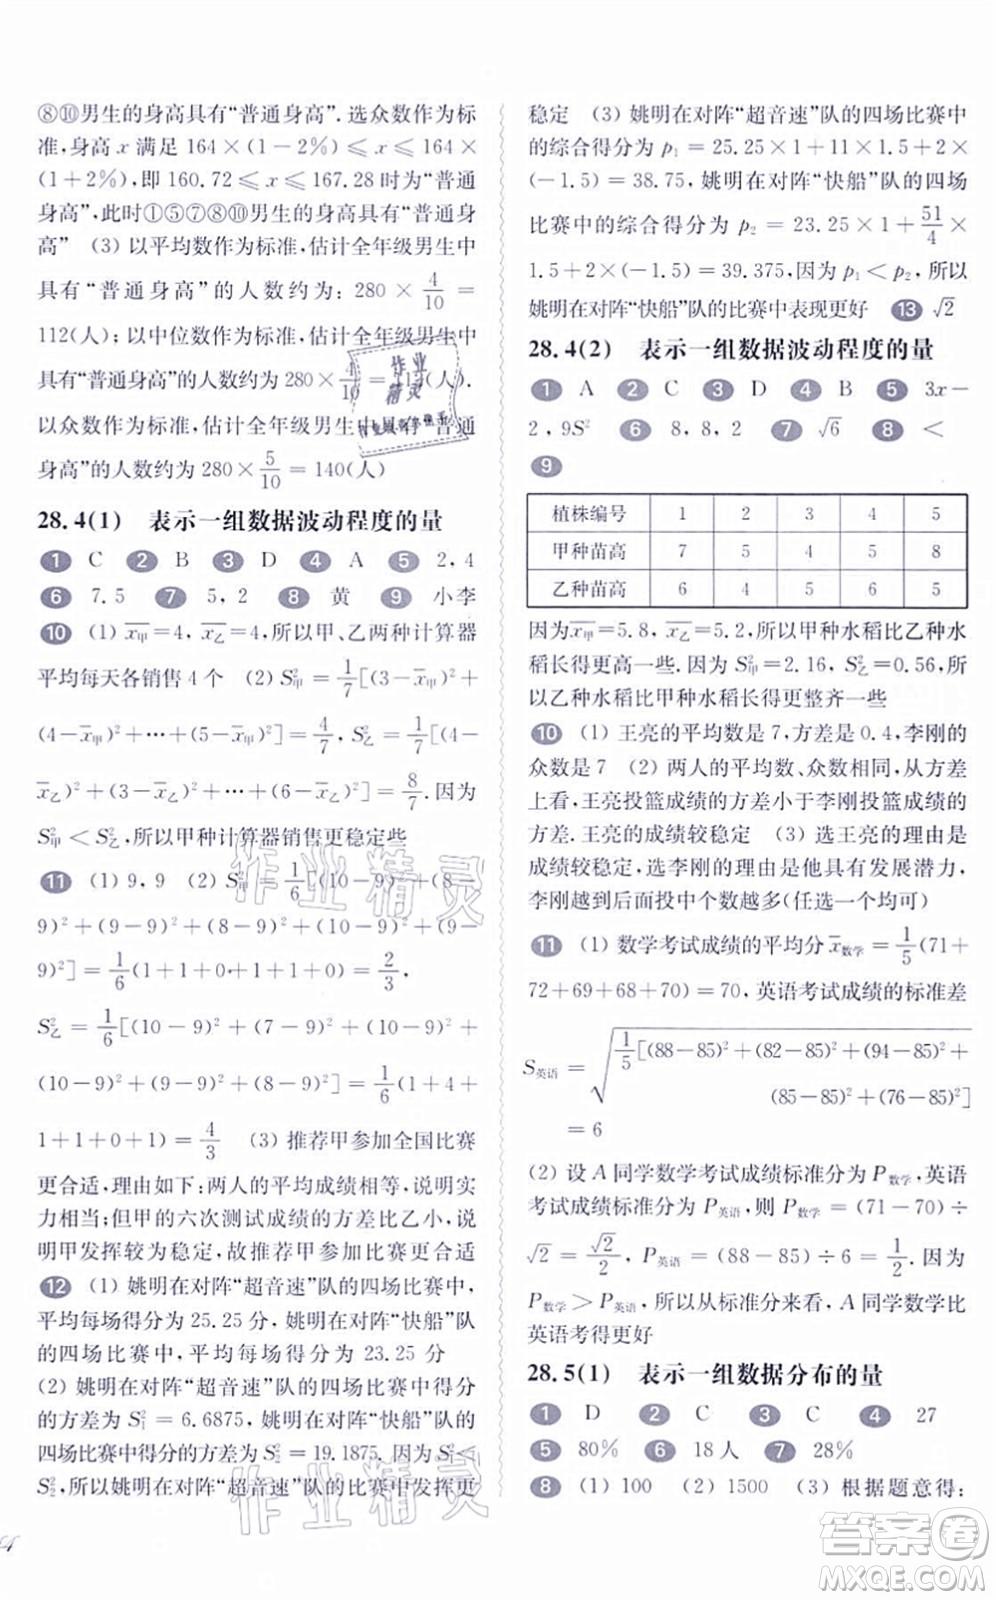 ⑧⑩男生的身高具有“普通身高”.选众数作为标
准,身高 x 满足 164×(1-2%)≤x≤164×
(1+2%),即 160.72≤x≤167.28 时为“普通
身高”,此时①⑤⑦⑧⑩男生的身高具有“普通身
高” (3) 以平均数作为标准,估计全年级男生中
具有“普通身高”的人数约为:280×4/10=
112(人);以中位数作为标准,估计全年级男生中
具有“普通身高”的人数约为280×4/10=112(人).
以众数作为标准,估计全年级男生中具有“普通
身高”的人数约为 280×5/10=140(人)
28.4(1) 表示一组数据波动程度的量
1 C 2 B 3 D 4 A 5 2,4
6 7.5 7 5,2 8 黄 9 小李
10 (1) x̄甲=4, x̄乙=4,所以甲、乙两种计算器
平均每天各销售 4 个 (2) S²甲=1/7[(3-x̄甲)²+
(4-x̄甲)²+…+(5-x̄甲)²]=4/7,S²乙=1/7[(4-
x̄乙)²+(3-x̄乙)²+…+(6-x̄乙)²]=8/7.因为
S²甲<S²乙,所以甲种计算器销售更稳定些
11 (1) 9,9 (2) S²甲=1/6[(10-9)²+(8-
9)²+(9-9)²+(8-9)²+(10-9)²+(9-
9)²]=1/6(1+1+0+1+1+0)=2/3,
S²乙=1/6[(10-9)²+(7-9)²+(10-9)²+
(10-9)²+(9-9)²+(8-9)²]=1/6(1+4+
1+1+0+1)=4/3 (3) 推荐甲参加全国比赛
更合适,理由如下:两人的平均成绩相等,说明实
力相当;但甲的六次测试成绩的方差比乙小,说
明甲发挥较为稳定,故推荐甲参加比赛更合适
12 (1) 姚明在对阵“超音速”队的四场比赛中,
平均每场得分为 25.25 分,姚明在对阵“快船”队
的四场比赛中,平均每场得分为 23.25 分
(2) 姚明在对阵“超音速”队的四场比赛中得分
的方差为 S²₁=6.6875,姚明在对阵“快船”队的
四场比赛中得分的方差为 S²₂=19.1875.因为 S²₁<
S²₂,所以姚明在对阵“超音速”队的比赛中发挥更
稳定 (3) 姚明在对阵“超音速”队的四场比赛中
的综合得分为 p₁=25.25×1+11×1.5+2×
(-1.5)=38.75,姚明在对阵“快船”队的四场
比赛中的综合得分为 p₂=23.25×1+51/4×
1.5+2×(-1.5)=39.375,因为 p₁<p₂,所以
姚明在对阵“快船”队的比赛中表现更好 13 √2
28.4(2) 表示一组数据波动程度的量
1 A 2 C 3 D 4 B 5 3x-
2,9S² 6 8,8,2 7 √6 8 <
9
植株编号 1 2 3 4 5
甲种苗高 7 5 4 5 8
乙种苗高 6 4 5 6 5
因为x̄甲=5.8,x̄乙=5.2,所以甲种水稻比乙种水
稻长得更高一些.因为 S²甲=2.16,S²乙=0.56,所
以乙种水稻比甲种水稻长得更整齐一些
10 (1) 王亮的平均数是 7,方差是 0.4,李刚的
众数是 7 (2) 两人的平均数、众数相同,从方差
上看,王亮投篮成绩的方差小于李刚投篮成绩的
方差.王亮的成绩较稳定 (3) 选王亮的理由是
成绩较稳定,选李刚的理由是具有发展潜力,
李刚越到后面投中个数越多(任选一个均可)
11 (1) 数学考试成绩的平均分 x̄数学=1/5(71+
72+69+68+70)=70,英语考试成绩的标准差
S英语=√(1/5[(88-85)²+(82-85)²+(94-85)²+
(85-85)²+(76-85)²])
=6
(2) 设 A 同学数学考试成绩标准分为 P数学,英语
考试成绩标准分为 P英语,则 P数学=(71-70)÷
√2=√2/2,P英语=(88-85)÷6=1/2.因为
P数学>P英语,所以从标准分来看,A 同学数学比
英语考得更好
28.5(1) 表示一组数据分布的量
1 D 2 C 3 C 4 27
5 80% 6 18 人 7 28%
8 (1) 100 (2) 1500 (3) 根据题意得:
作业精灵
作业精灵
作业精灵
答案圈
MXQE.COM